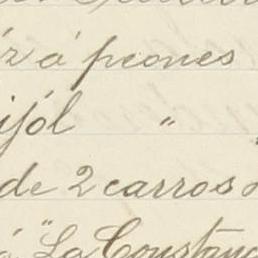 á peones
ijól "
de 2 carros
á "La Constanc